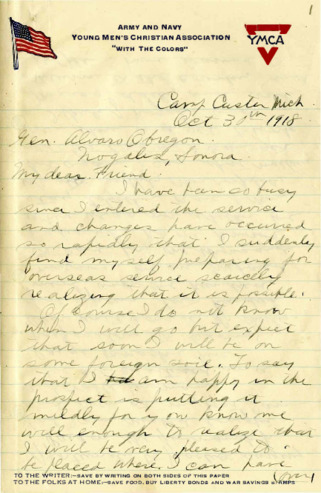 1
ARMY AND NAVY
YOUNG MEN'S CHRISTIAN ASSOCIATION
"WITH THE COLORS"
YMCA
Camp Custer Mich.
Oct 30th 1918
Gen. Alvaro Obregon.
Nogales, Sonora.
My dear Friend.
I have been so busy
since I entered the service
and changes have occurred
so rapidly that I suddenly
find myself preparing for
overseas service scarcely
realizing that it is possible.
Of course I do not know
when I will go but expect
that soon I will be on
some foreign soil. To say
that I am happy in the
prospect is putting it
mildly for you know me
well enough to realize that
I will be very pleased to
be placed where I can have
TO THE WRITER—SAVE BY WRITING ON BOTH SIDES OF THIS PAPER
TO THE FOLKS AT HOME—SAVE FOOD, BUY LIBERTY BONDS AND WAR SAVINGS STAMPS